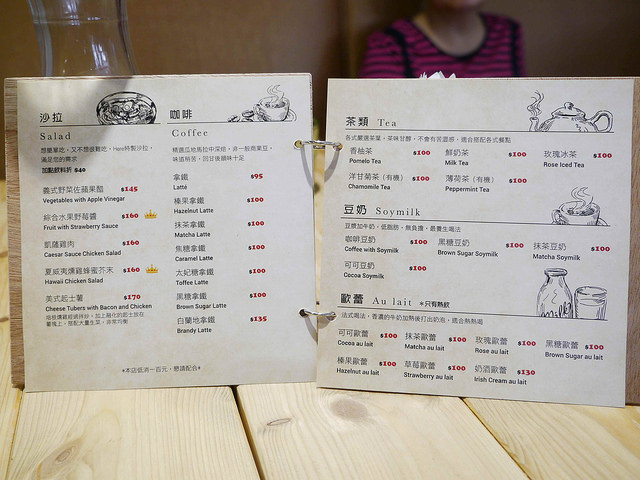 沙拉
Salad
想簡單吃,又不想很難吃,Here特製沙拉,
滿足您的需求
加點飲料折 $40
義式野菜佐蘋果醋 $145
Vegetables with Apple Vinegar
綜合水果野莓醬 $160
Fruit with Strawberry Sauce
凱薩雞肉 $160
Caesar Sauce Chicken Salad
夏威夷燻雞蜂蜜芥末 $160
Hawaii Chicken Salad
美式起士薯 $170
Cheese Tubers with Bacon and Chicken
*本店低消一百元,懇請配合*
咖啡
Coffee
精選瓜地馬拉中深焙,非一般商業豆,
味道稍苦,回甘後韻味十足
拿鐵 $95
Latté
榛果拿鐵 $100
Hazelnut Latte
抹茶拿鐵 $100
Matcha Latte
焦糖拿鐵 $100
Caramel Latte
太妃糖拿鐵 $100
Toffee Latte
黑糖拿鐵 $100
Brown Sugar Latte
白蘭地拿鐵 $135
Brandy Latte
茶類 Tea
各式嚴選茶葉,茶味甘醇,不會有苦澀感,適合搭配各式餐點
香柚茶 $100 鮮奶茶 $100 玫瑰冰茶 $100
Pomelo Tea Milk Tea Rose Iced Tea
洋甘菊茶(有機) $100 薄荷茶(有機) $100
Chamomile Tea Peppermint Tea
豆奶 Soymilk
豆漿加牛奶,低脂肪,無負擔,最養生喝法
咖啡豆奶 $100 黑糖豆奶 $100 抹茶豆奶 $100
Coffee with Soymilk Brown Sugar Soymilk Matcha Soymilk
可可豆奶 $100
Cocoa Soymilk
歐蕾 Au lait *只有熱飲
法式喝法,香濃的牛奶加熱後打出奶泡,適合熱熱喝
可可歐蕾 $100 抹茶歐蕾 $100 玫瑰歐蕾 $100 黑糖歐蕾 $100
Cocoa au lait Matcha au lait Rose au lait Brown Sugar au lait
榛果歐蕾 $100 草莓歐蕾 $100 奶酒歐蕾 $130
Hazelnut au lait Strawberry au lait Irish Cream au lait